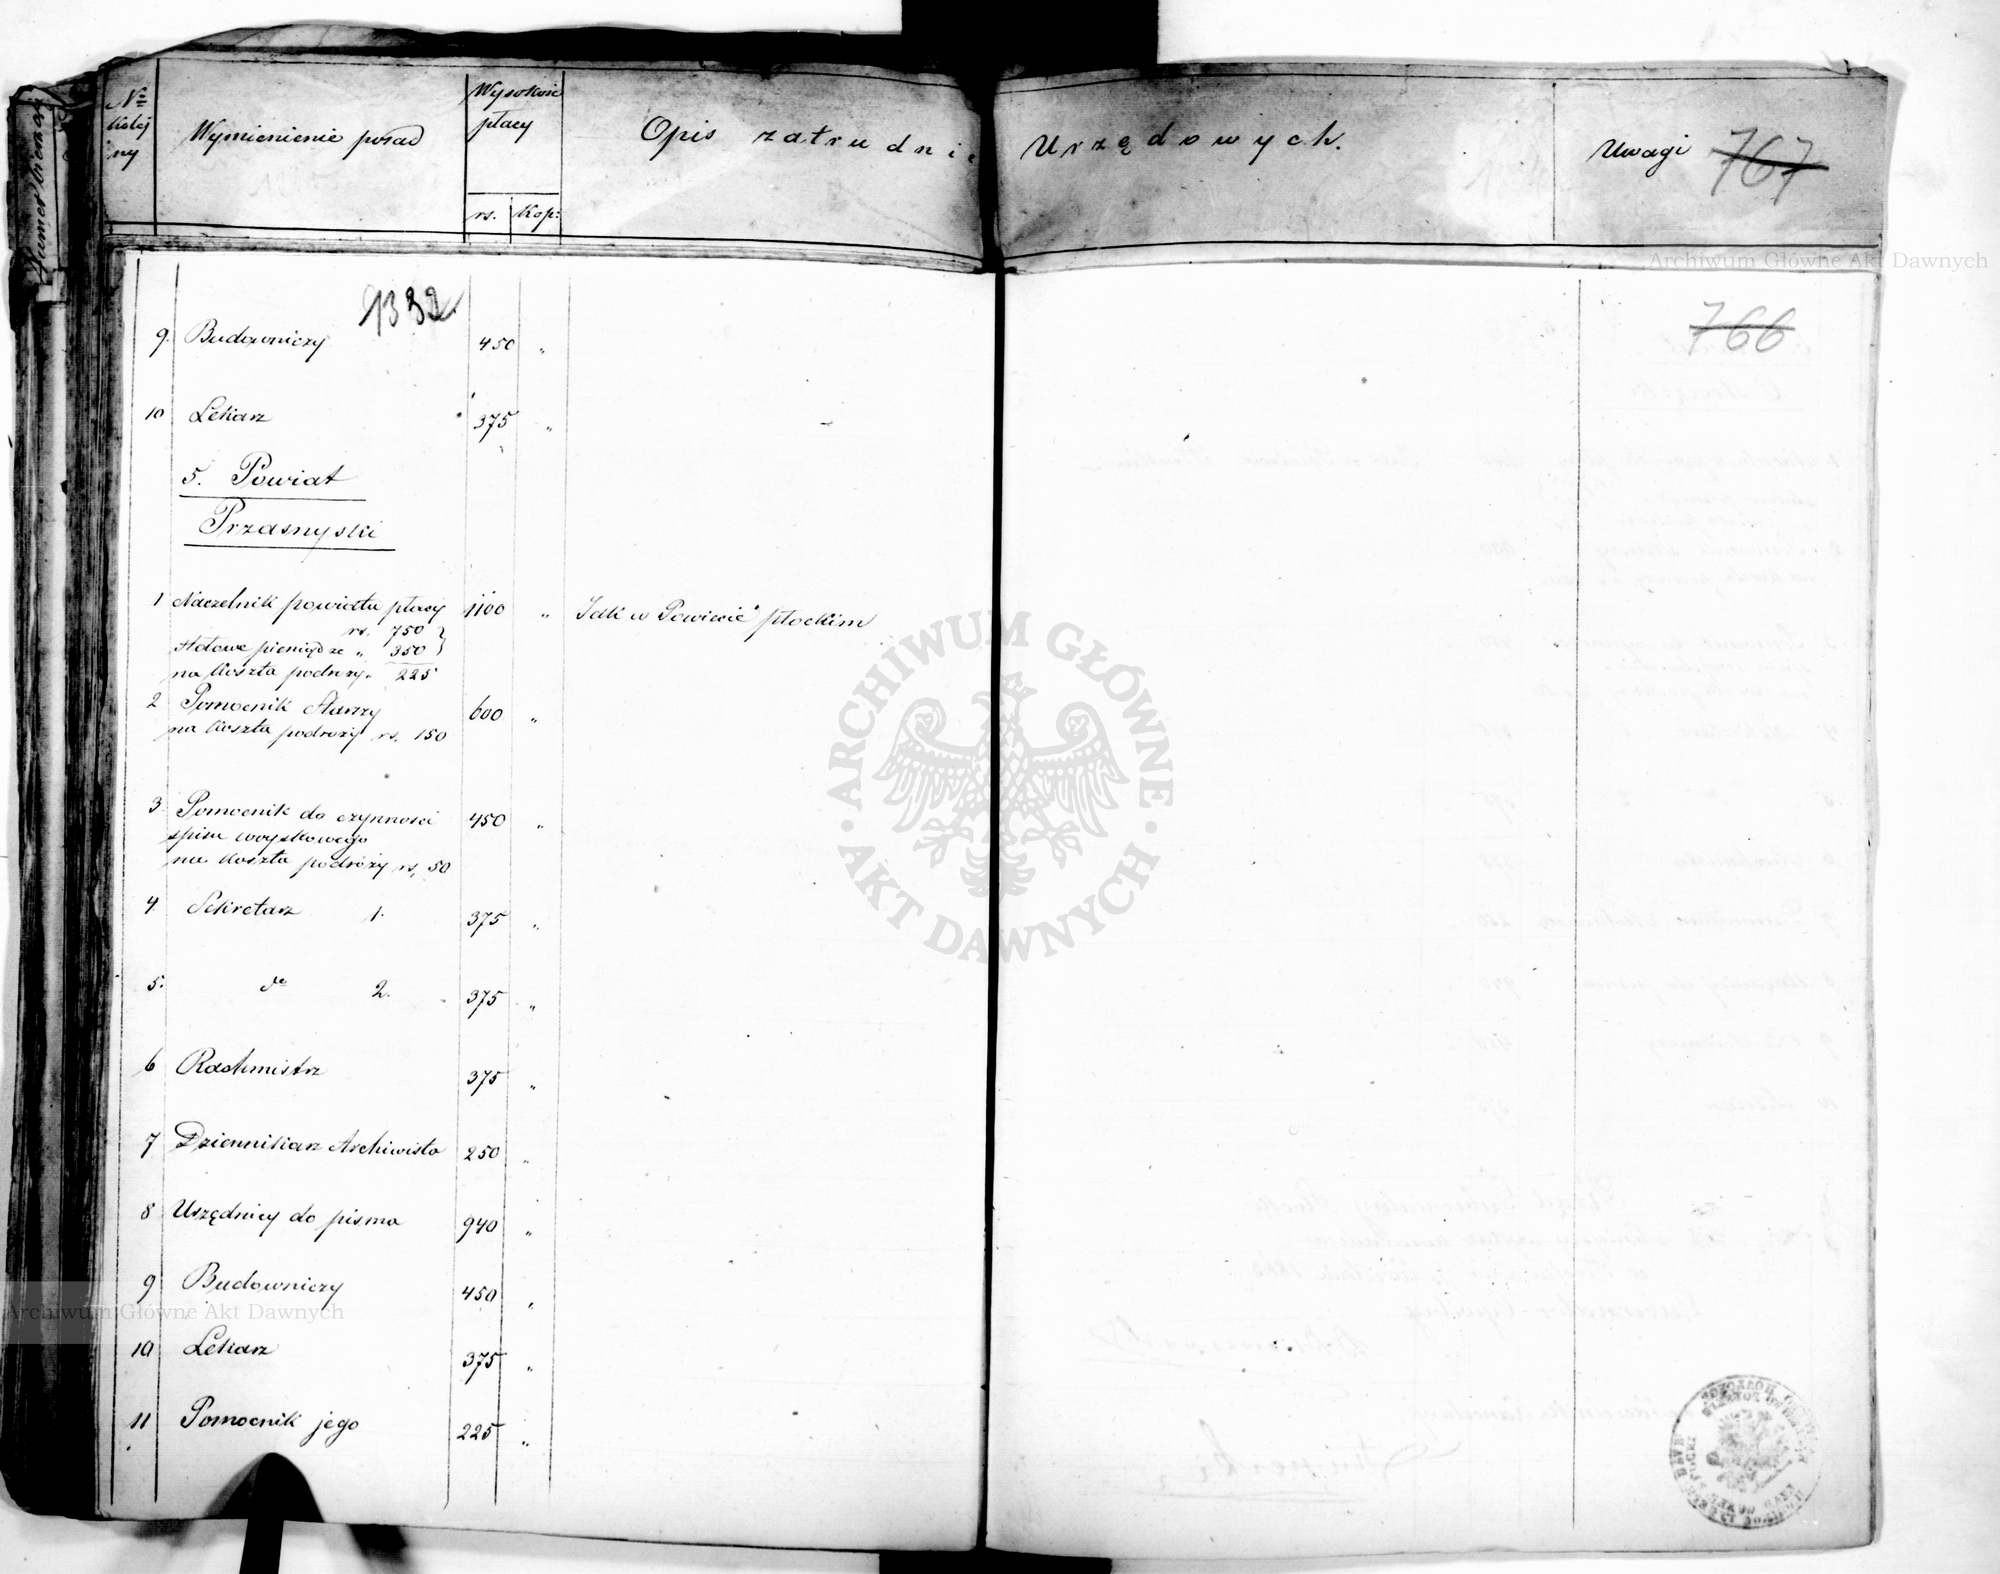 No kolej ny
Wymienienie posad
Wysokość płacy
rs. Kop:
Opis zatrudnień Urzędowych.
Uwagi
767
766
9332
9. Budowniczy 450 "
10 Lekarz 375 "
5. Powiat
Przasnyski
1 Naczelnik powiatu płacy 1100 " Jak w Powiecie płockim
rs. 750
stołowe pieniądze " 350
na koszta podróży " 225
2 Pomocnik Starszy 600 "
na koszta podróży rs. 150
3 Pomocnik do czynności 450 "
spisu wojskowego
na koszta podróży rs. 50
4 Sekretarz 1. 375 "
5. do 2. 375 "
6 Rachmistrz 375 "
7 Dziennikarz Archiwista 250 "
8 Urzędnicy do pisma 940 "
9 Budowniczy 450 "
10 Lekarz 375 "
11 Pomocnik jego 225 "
ARCHIWUM GŁÓWNE
AKT DAWNYCH
Archiwum Główne Akt Dawnych
Archiwum Główne Akt Dawnych